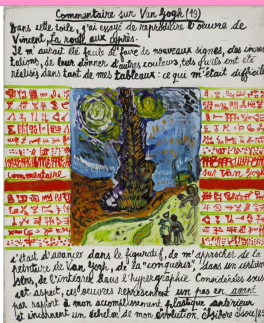 Commentaire sur Van Gogh (19)
Dans cette toile, j'ai essayé de reproduire l'oeuvre de
Vincent, La route aux cyprès.
Il m'aurait été facile d'faire de nouveaux signes, des incrus
tations, de leur donner d'autres couleurs, tels qu'ils ont été
réalisés dans tant de mes tableaux : ce qui m'était difficile
Commentaire
sur
c'était d'avancer dans le figuratif, de m'approcher de la
peinture de Van Gogh, de la "conquérir" dans un certain
sens, de l'intégrer dans l'hypergraphie Considérées sous
cet aspect, ces oeuvres représentent un pas en avant
par rapport à mon accomplissement plastique antérieur
et inscrivent un échelon de mon évolution Isidore Isou